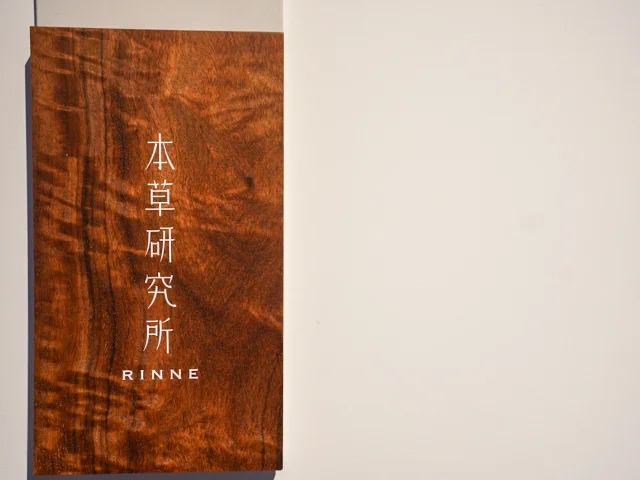 本草研究所
RINNE